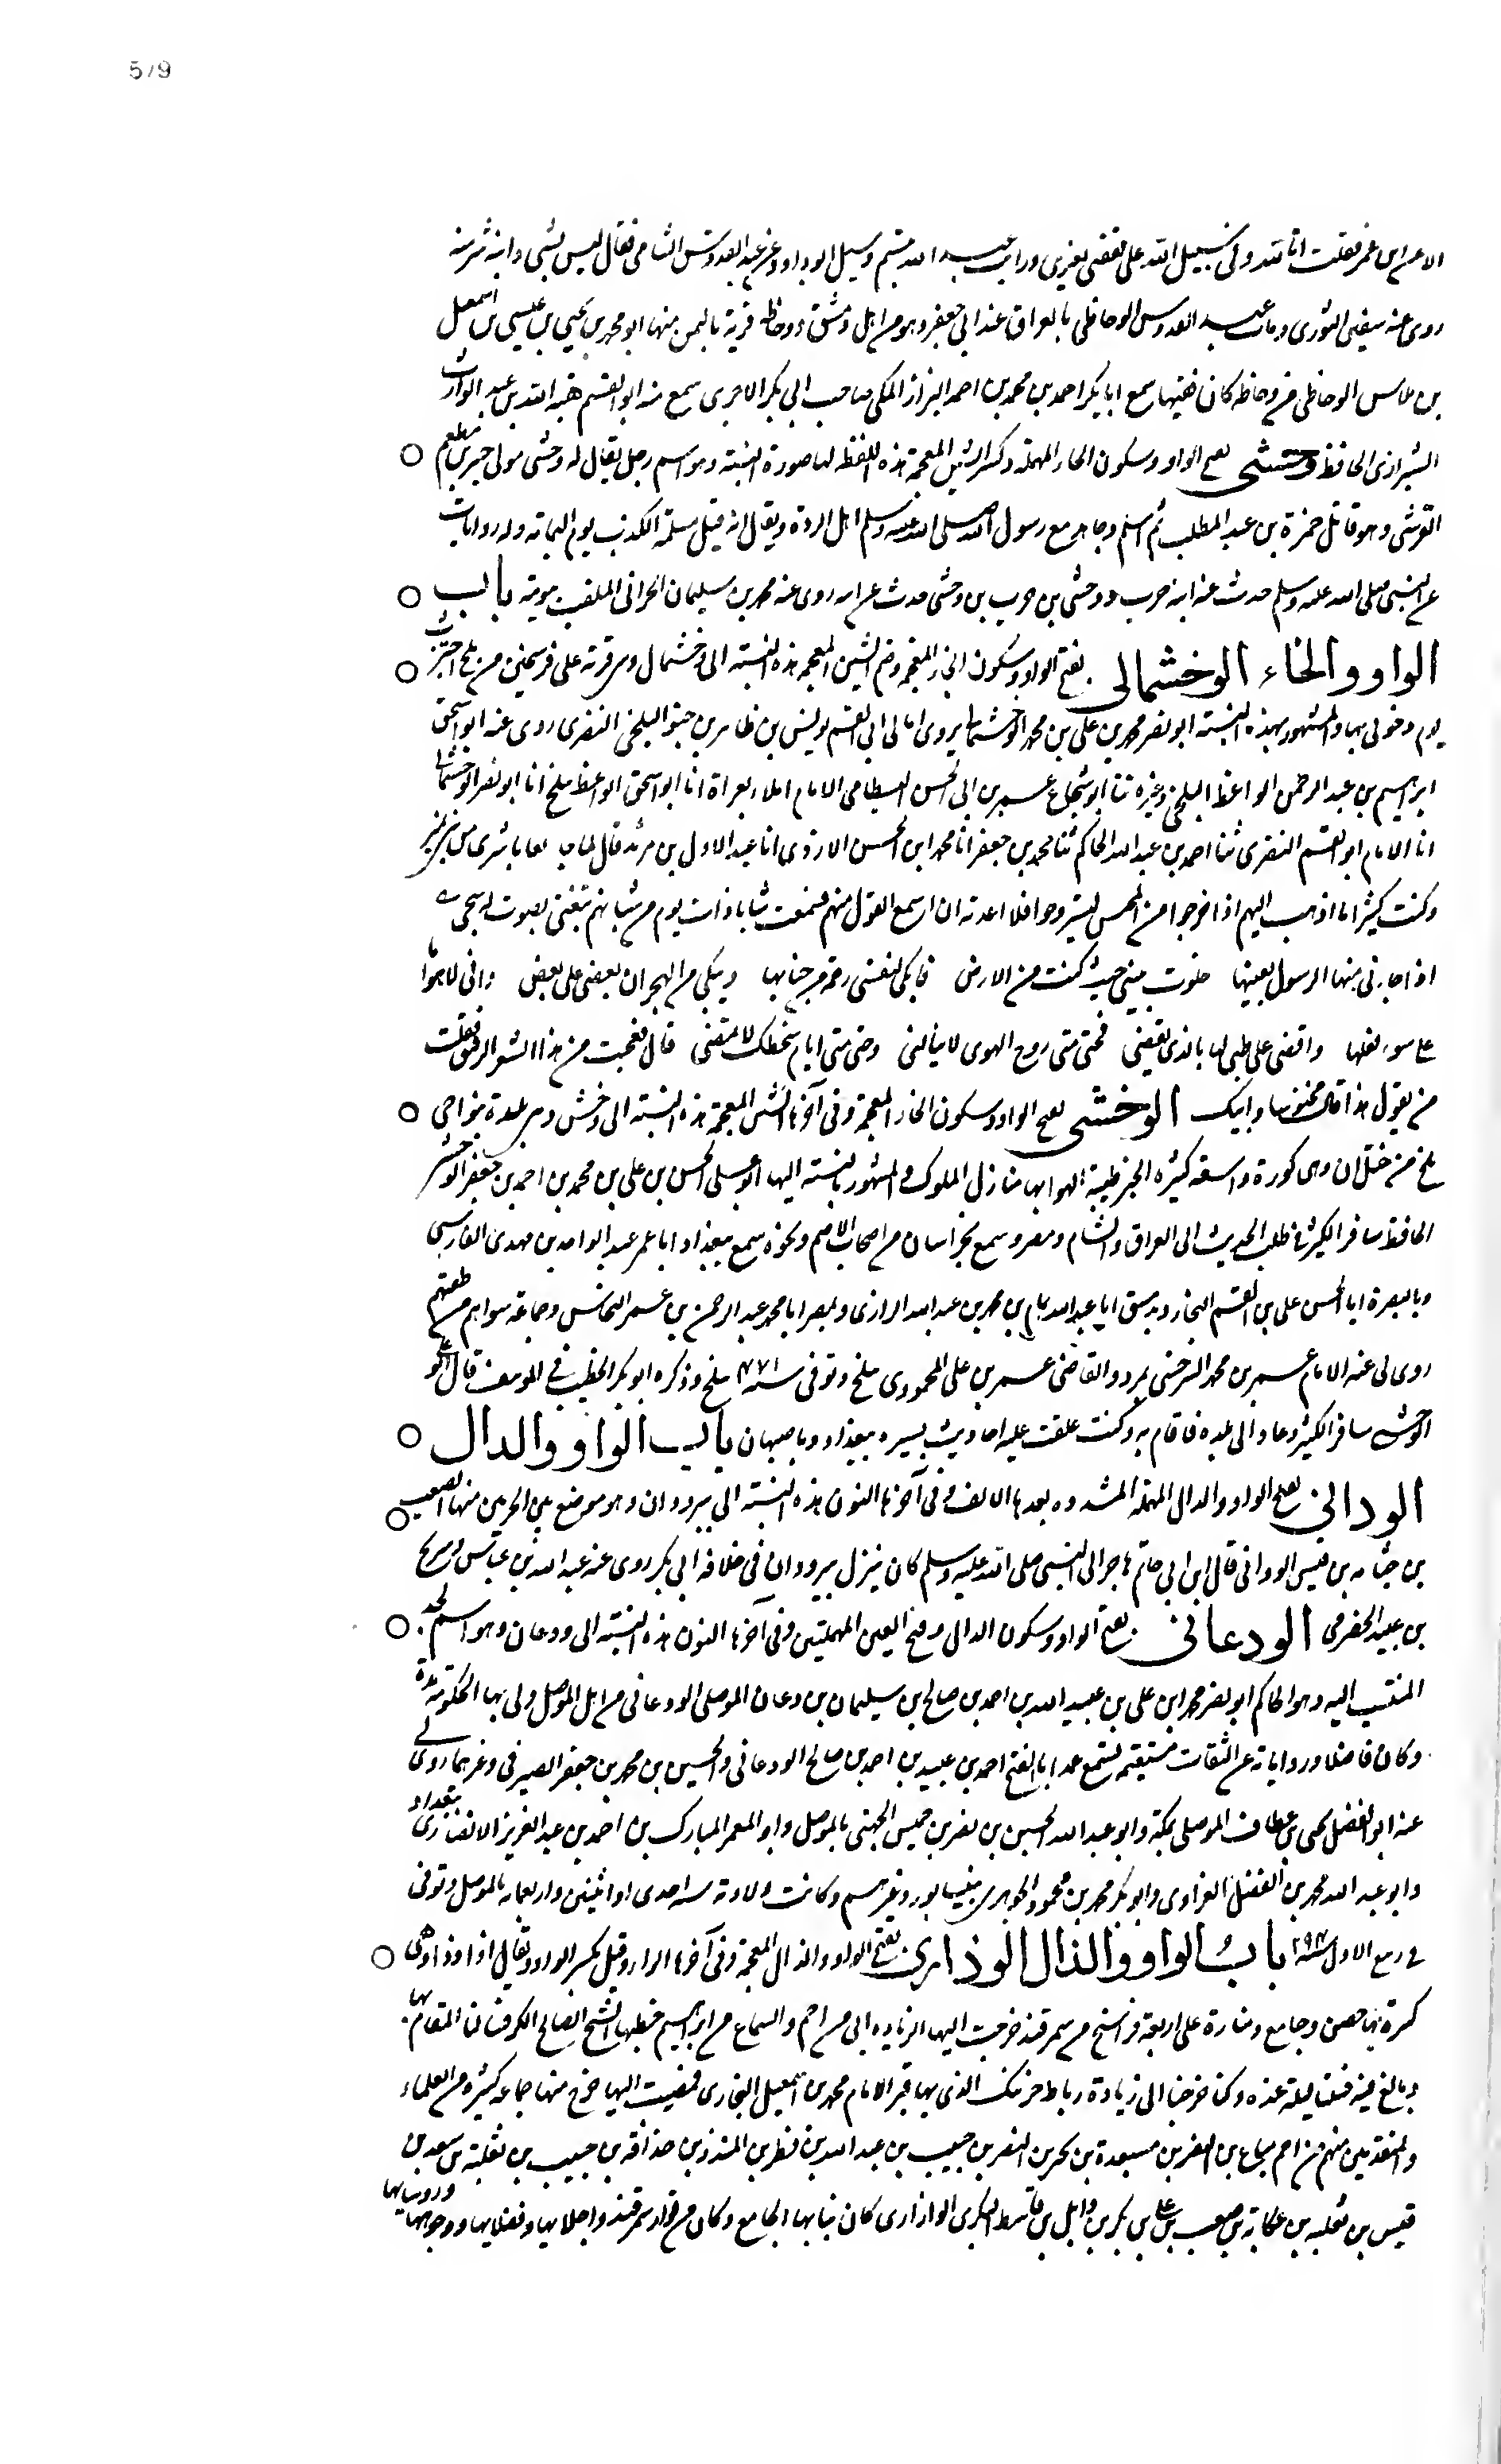 579
الاعرابى عمر فقلت انا لله ولى سبيل الله على بعضى بعزى ورايت عبد الله مبتسم وسيل ابو داود عن عبد القدوس الشامى فقال ليس بشى وابنه شر منه
روى عنه سفين الثورى ومات عبد القدوس الوحاظى بالعراق عند ابى جعفر وهو من اهل دمشق ووحاظة قرية باليمن منها ابو محمد بن يحيى بن عيسى بن اسمعيل
بن ملامس الوحاظى من وحاظة كان فقيها سمع ابا بكر احمد بن محمد بن احمد البزاز المكى صاحب ابى بكر الاجرى سمع منه ابو القسم هبة الله بن عبد الوارث
الشيرازى الحافظ وحشى بفتح الواو وسكون الحاء المهملة وكسر الشين المعجمة هذه اللفظة لها صورة النسبة وهو اسم رجل يقال له وحشى مولى جبير بن مطعم
القرشى وهو قاتل حمزة بن عبد المطلب ثم اسلم وجاهد مع رسول الله صلى الله عليه وسلم اهل الردة ويقال انه قتل مسلمة الكذاب يوم اليمامة وله روايات
عن النبى صلى الله عليه وسلم حدث عنه ابنه حرب ووحشى بن حرب بن وحشى حدث عن ابيه روى عنه محمد بن سليمان الحرانى الملقب ببومة باب
الواو والخاء الوخشمالى بفتح الواو وسكون الخاء المعجمة وضم الشين المعجمة هذه النسبة الى وخشمال وهى قرية على فرسخين من بلخ اجتزت
يوم دخولى بها والمشهور بهذه النسبة ابو نصر محمد بن على بن محمد الوخشمالى يروى امالى ابى القسم يونس بن طاهر بن حيو البلخى النضرى روى عنه ابو اسحق
ابراهيم بن عبد الرحمن الواعظ البلخى وغيره ثنا ابو شجاع عمر بن ابى الحسن البسطامى الامام املاء بهراة انا ابو اسحق الواعظ ببلخ انا ابو نصر الوخشمالى
انا الامام ابو القسم النضرى ثنا احمد بن عبد الله الحاكم ثنا محمد بن جعفر انا محمد ابن الحسن الازدى انا عبد الاول بن مرثد قال
وكنت كثيرا ما اذهب اليهم اذا خرجوا من الحبس ليتروحوا فلا اعدته ان اسمع القول منهم فسمعت شابا ذات يوم من شبانهم يتغنى بصوت له شجى
اذا جاءنى منها الرسول بعينها خلوت ببيتى حيث كنت من الارض فابكى لنفسى رحمة من جنابها ويبكى من الهجران بعضى على بعض وانى لاهواها
على سوء فعلها واقضى على قلبى لها بالذى تقضى فحتى متى روح الهوى لا ينالنى وحتى متى ايام سخطك لا تمضى قال فعجبت من هذا الشعر الرقيق فقلت
من يقول هذا قال مجنوننا وابيك الوخشى بفتح الواو وسكون الخاء المعجمة وفى آخرها الشين المعجمة هذه النسبة الى وخش وهى بلدة بنواحى
بلخ من ختلان وهى كورة واسعة كثيرة الخير طيبة الهواء بها منازل الملوك والمشهور بالنسبة اليها ابو على الحسن بن على بن محمد بن احمد بن جعفر الوخشى
الحافظ سافر الكثير فى طلب الحديث الى العراق والشام ومصر وسمع بخراسان من اصحاب الاصم ونحوه سمع ببغداد ابا عمر عبد الواحد بن مهدى الفارسى
وبالبصرة ابا الحسن على بن القسم النجاد وبدمشق ابا عبد الله تمام بن محمد بن عبد الله الرازى وبمصر ابا محمد عبد الرحمن بن عمر النحاس وجماعة سواهم من طبقتهم
روى لى عنه الامام عمر بن محمد السرخسى بمرو والقاضى عمر بن على المحمودى ببلخ وتوفى سنة ٤٧١ ببلخ وذكره ابو بكر الخطيب فى المؤتنف قال ابو على
الوخشى سافر الكثير وعاد الى بلده فاقام به وكنت علقت عليه احاديث يسيرة ببغداد وباصبهان باب الواو والدال
الودانى بفتح الواو والدال المهملة المشددة بعدها الالف وفى آخرها النون هذه النسبة الى ودان وهو موضع بين الحرمين منها الصعب
بن جثامة بن قيس الودانى قال ابن ابى حاتم هاجر الى النبى صلى الله عليه وسلم كان ينزل بودان فى خلافة ابى بكر روى عنه عبد الله بن عباس وشريح
بن عبيد الحضرمى الودعانى بفتح الواو وسكون الدال وفتح العين المهملتين وفى آخرها النون هذه النسبة الى ودعان وهو اسم لجد
المنتسب اليه وهو الحاكم ابو نصر محمد ابن على بن عبيد الله بن احمد بن صالح بن سليمان بن ودعان الموصلى الودعانى من اهل الموصل ولى بها الحكومة مدة
وكان فاضلا وروايات عن الثقات مستقيمة سمع عمه ابا الفتح احمد بن عبيد بن احمد بن صالح الودعانى والحسين بن محمد بن جعفر الصيرفى وغيرهما روى لى
عنه ابو الفضل يحيى بن عطاف الموصلى بمكة وابو عبد الله الحسين بن نصر بن خميس الجهنى بالموصل وابو المعمر المبارك بن احمد بن عبد العزيز الانصارى ببغداد
وابو عبد الله محمد بن الفضل الفراوى وابو بكر محمد بن محمود الجوهرى بنيسابور وغيرهم وكانت ولادته سنة احدى او اثنين واربعمائة بالموصل وتوفى
فى ربيع الاول سنة ٤٩٤ باب الواو والذال الوذارى بفتح الواو والذال المعجمة وفى آخرها الراء وقيل بكسر الواو ويقال اذا وذار وهى
كبيرة بها حصن وجامع ومنارة على اربعة فراسخ من سمرقند خرجت اليها لزيارة ابى مزاحم والسماع من ابراهيم خطيبها الشيخ الصالح المقام بها
وبالغ فيه فبتنا ليلة عنده وكنا خرجنا الى زيارة رباط خرتنك الذى بها قبر الامام محمد بن اسمعيل البخارى فمضيت اليها خرج منها جماعة كثيرة من العلماء
والمتقدمين منهم مزاحم سباع بن النضر بن مسعدة بن بحر بن النضر بن حبيب بن عبد الله بن قنطر بن المنذر بن حذافة بن حبيب بن ثعلبة بن سعد بن
قيس بن ثعلبة بن عكابة بن صعب بن على بن بكر بن وايل بن قاسط البكرى الوذارى كان بنابها الجامع وكان من قواد سمرقند واجلايها وفضلايها ووجوهها وروسايها